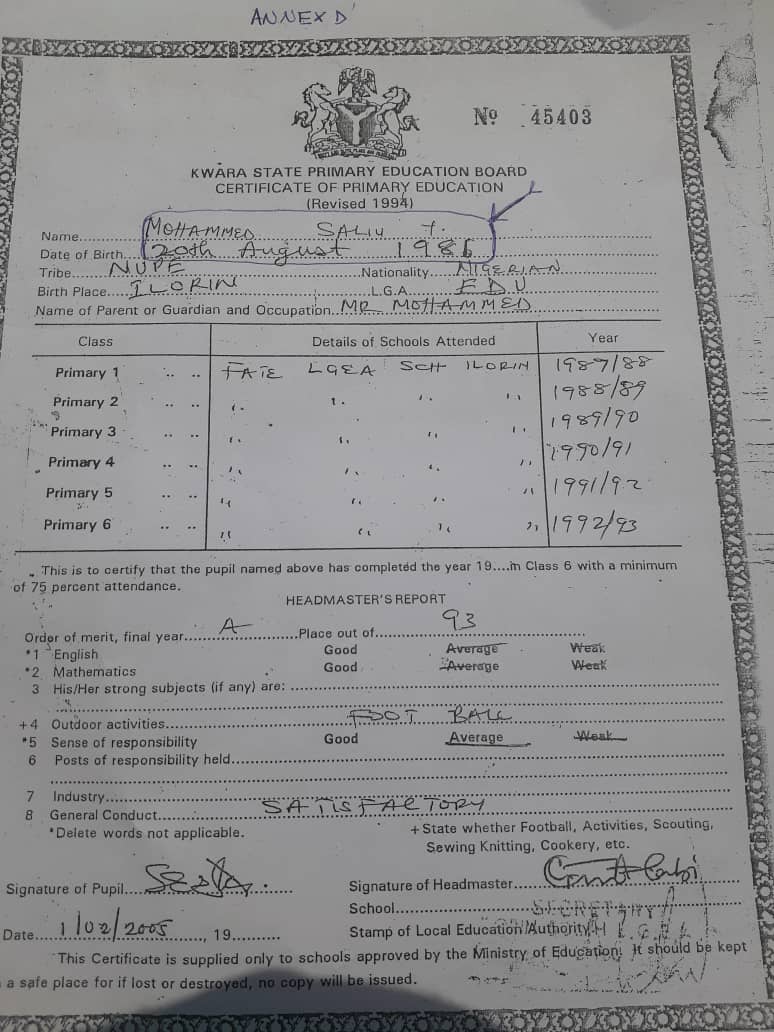 ANNEX D'
Nº 45403
KWARA STATE PRIMARY EDUCATION BOARD
CERTIFICATE OF PRIMARY EDUCATION
(Revised 1994)
Name MOHAMMED SALIU Y.
Date of Birth 20th August 1986
Tribe NUPE Nationality NIGERIAN
Birth Place ILORIN L.G.A EDU
Name of Parent or Guardian and Occupation MR MOHAMMED
Class Details of Schools Attended Year
Primary 1 FATE LGEA SCH ILORIN 1987/88
Primary 2 " " " " 1988/89
Primary 3 " " " " 1989/90
Primary 4 " " " " 1990/91
Primary 5 " " " " 1991/92
Primary 6 " " " " 1992/93
This is to certify that the pupil named above has completed the year 19....in Class 6 with a minimum
of 75 percent attendance.
HEADMASTER'S REPORT
Order of merit, final year A Place out of 93
*1 English Good Average Weak
*2 Mathematics Good Average Weak
3 His/Her strong subjects (if any) are:
+4 Outdoor activities FOOT BALL
*5 Sense of responsibility Good Average Weak
6 Posts of responsibility held
7 Industry
8 General Conduct SATISFACTORY
*Delete words not applicable. +State whether Football, Activities, Scouting,
Sewing Knitting, Cookery, etc.
Signature of Pupil Signature of Headmaster
School SECRETARY
Date 1/02/2005, 19 Stamp of Local Education Authority
This Certificate is supplied only to schools approved by the Ministry of Education. It should be kept
a safe place for if lost or destroyed, no copy will be issued.